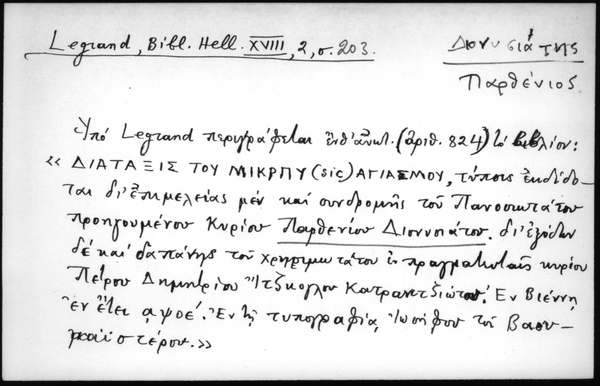 Legrand, Bibl. Hell. XVIII, 2, σ. 203.
Διονυσιάτης
Παρθένιος
Ὑπό Legrand περιγράφεται ἔνθ' ἀνωτ. (ἀριθ. 824) τό βιβλίον:
« ΔΙΑΤΑΞΙΣ ΤΟΥ ΜΙΚΡΠΥ (sic) ΑΓΙΑΣΜΟΥ, τύποις ἐκδίδο-
ται δι' ἐπιμελείας μέν καί συνδρομῆς τοῦ Πανοσιωτάτου
προηγουμένου Κυρίου Παρθενίου Διονυσιάτου. δι' ἐξόδων
δέ καί δαπάνης τοῦ χρησιμωτάτου ἐν πραγματευταῖς κυρίου
Πέτρου Δημητρίου Ἰτζκογλου Κατρανιτζιώτου. Ἐν Βιέννῃ
ἐν ἔτει αψοε΄. Ἐν τῇ τυπογραφίᾳ Ἰωσήφου τοῦ Βαου-
μαϊστέρου.»